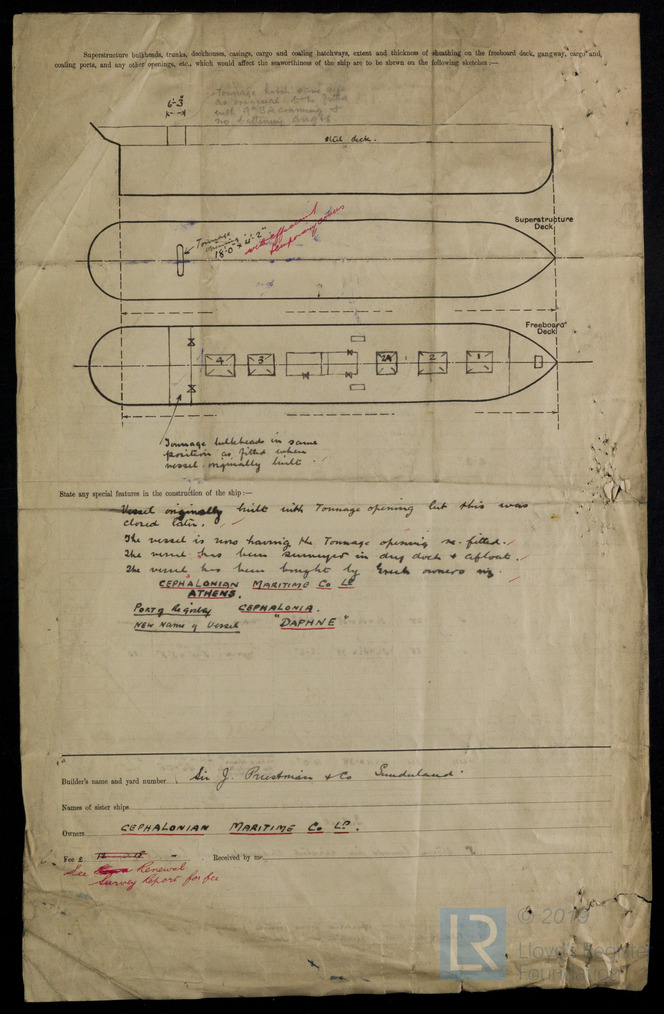 Superstructure bulkheads, trunks, deckhouses, casings, cargo and coaling hatchways, extent and thickness of sheathing on the freeboard deck, gangway, cargo and
coaling ports, and any other openings, etc., which would affect the seaworthiness of the ship are to be shewn on the following sketches :—
Tonnage hatch same size
as original & to be fitted
with 9" B A coaming &
no battening
6'-3"
Steel deck.
Superstructure
Deck
Tonnage
opening
18'-0" x 4'-2"
with efficient
temporary covers
Freeboard
Deck
4 3 2A 2 1
Tonnage bulkheads in same
position as fitted when
vessel originally built
State any special features in the construction of the ship :—
Vessel originally built with Tonnage opening but this was
closed later.
The vessel is now having the Tonnage opening re-fitted.
The vessel has been surveyed in dry dock & afloat.
The vessel has been bought by Greek owners viz.
CEPHALONIAN MARITIME Co LD
ATHENS.
Port of Registry CEPHALONIA.
New Name of Vessel "DAPHNE"
Builder's name and yard number Sir J. Priestman & Co Sunderland.
Names of sister ships
Owners CEPHALONIAN MARITIME Co LD.
Fee £ 12 - Received by me
See Renewal
Survey Report for fee
LR
© 2019
Lloyd's Register
Foundation